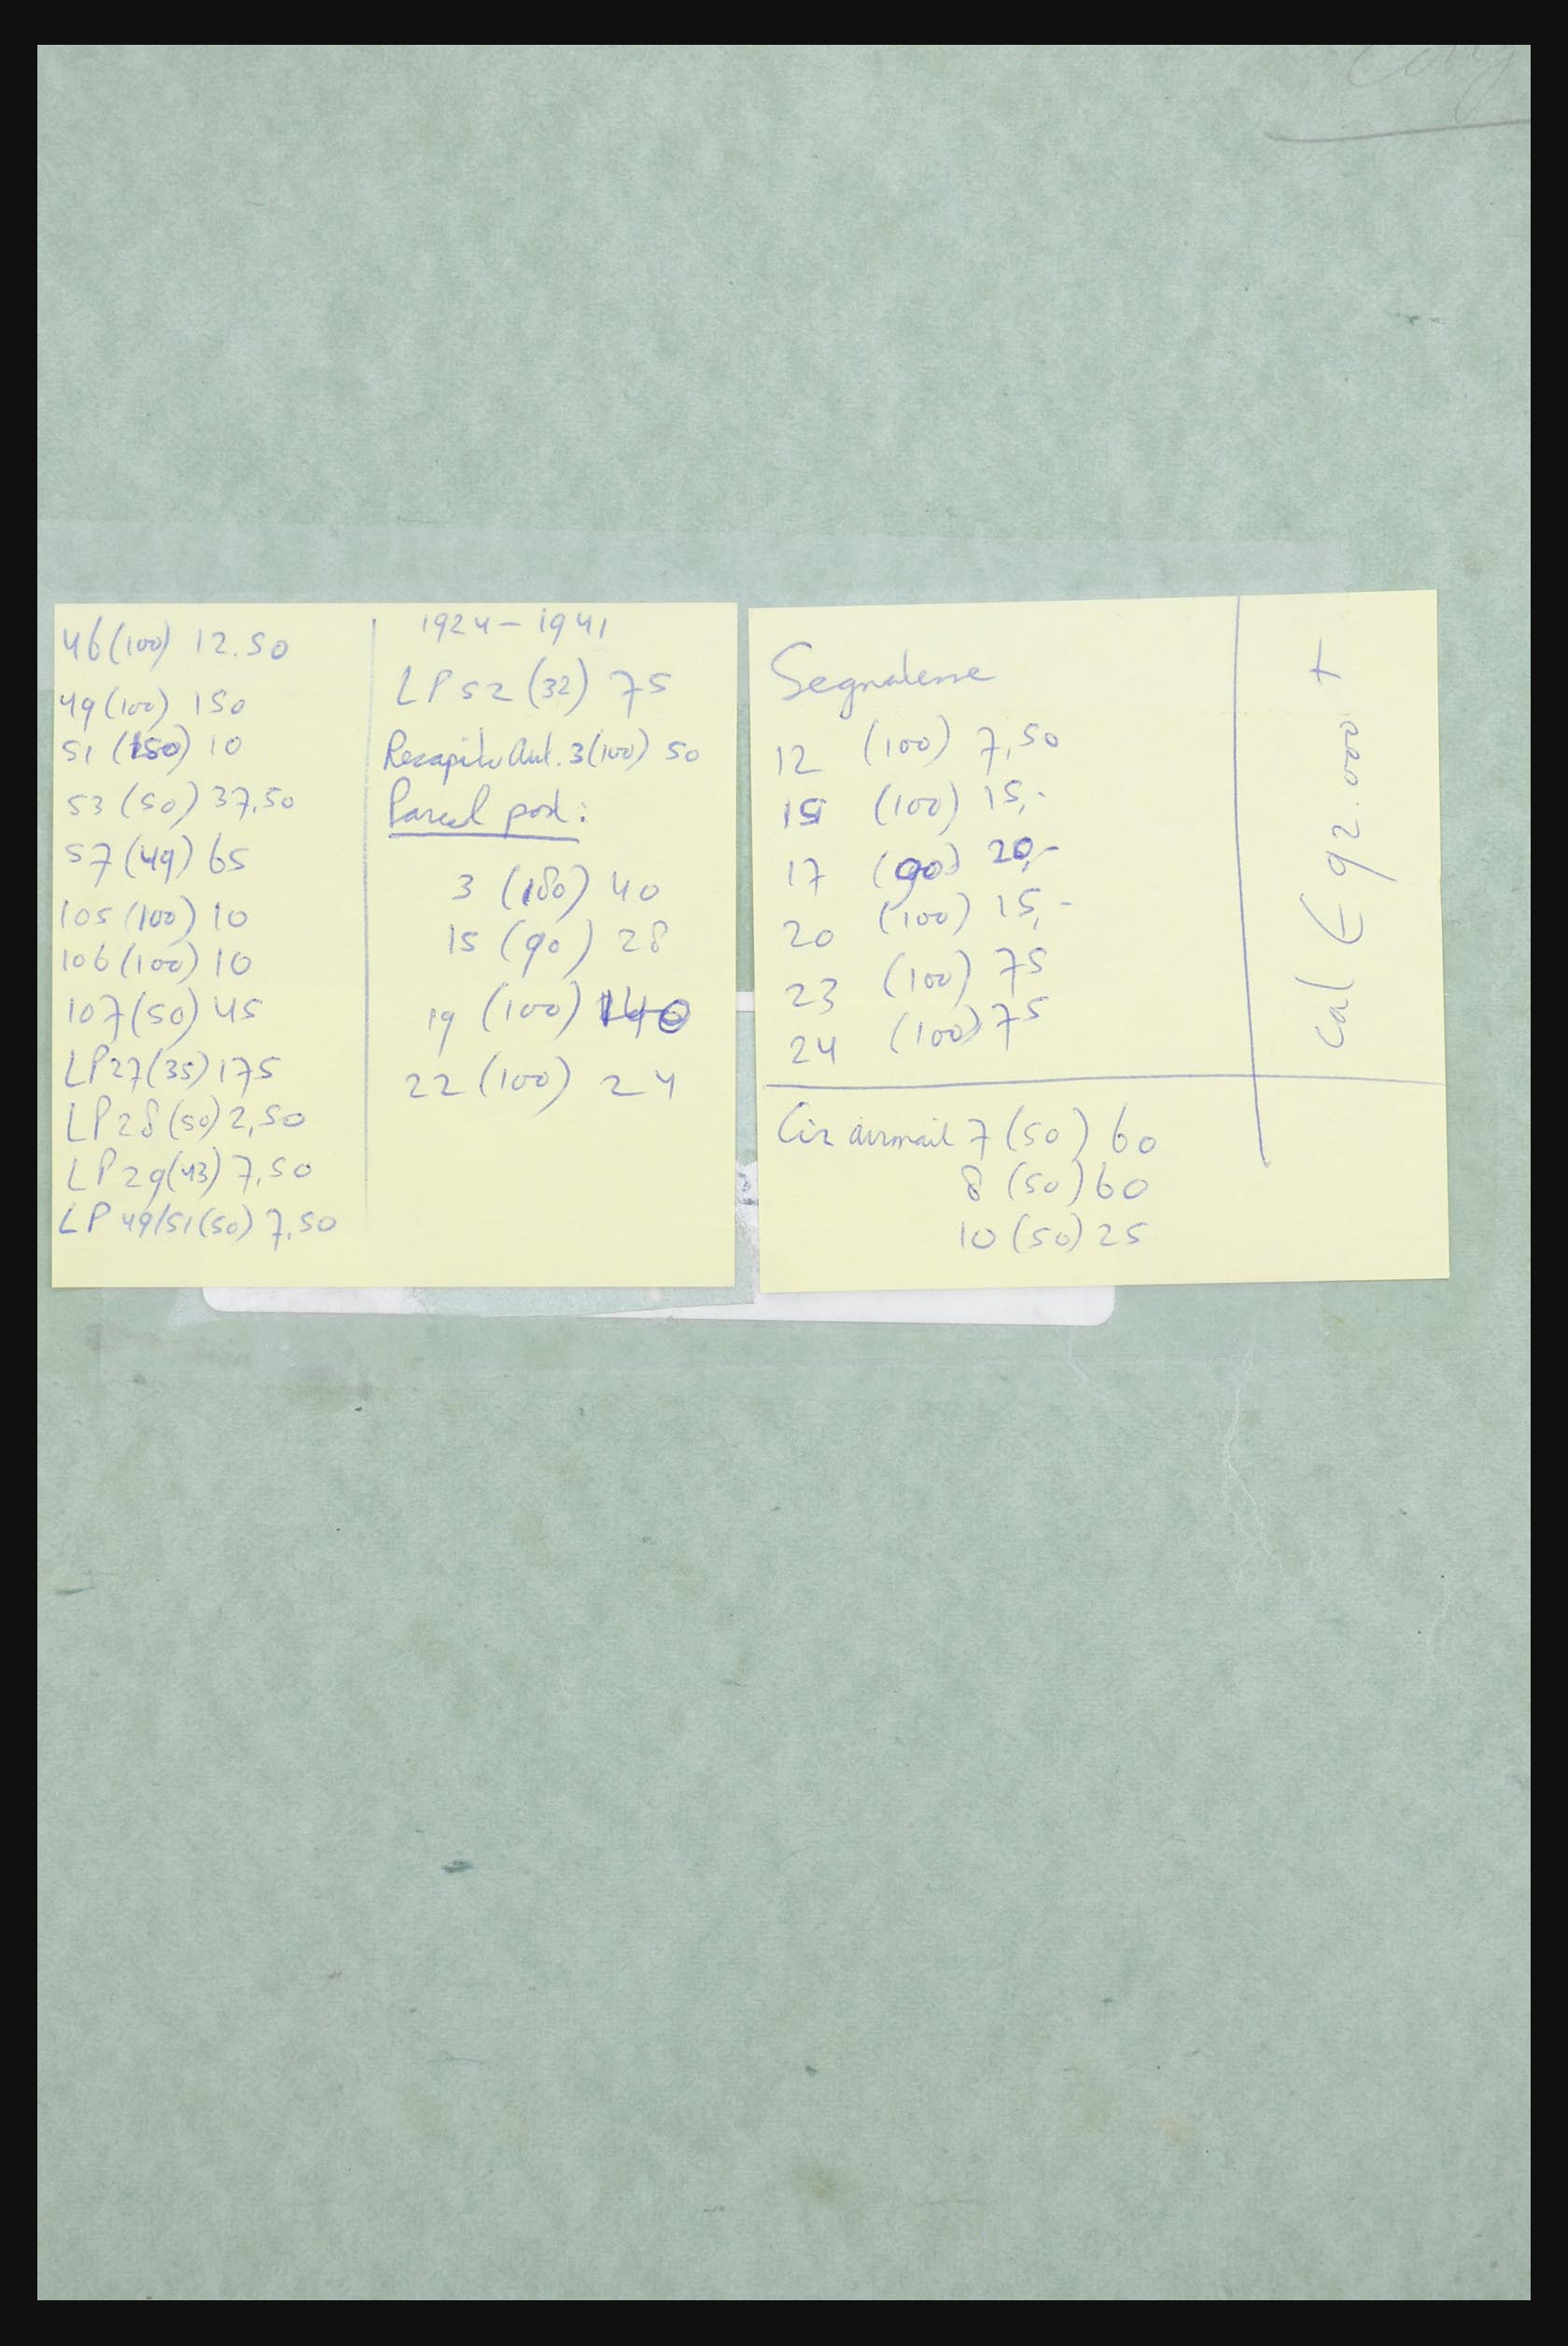 46 (100) 12.50
49 (100) 150
51 (150) 10
53 (50) 37,50
57 (49) 65
105 (100) 10
106 (100) 10
107 (50) 45
LP27 (35) 175
LP28 (50) 2,50
LP29 (43) 7,50
LP 49/51 (50) 7,50
1924 - 1941
LP52 (32) 75
Recapito Aut. 3 (100) 50
Parcel post:
3 (100) 40
15 (90) 28
19 (100) 140
22 (100) 24
Segnatasse
12 (100) 7,50
15 (100) 15,-
17 (90) 20,-
20 (100) 15,-
23 (100) 75
24 (100) 75
Cir airmail 7 (50) 60
8 (50) 60
10 (50) 25
cal € 92.000 +